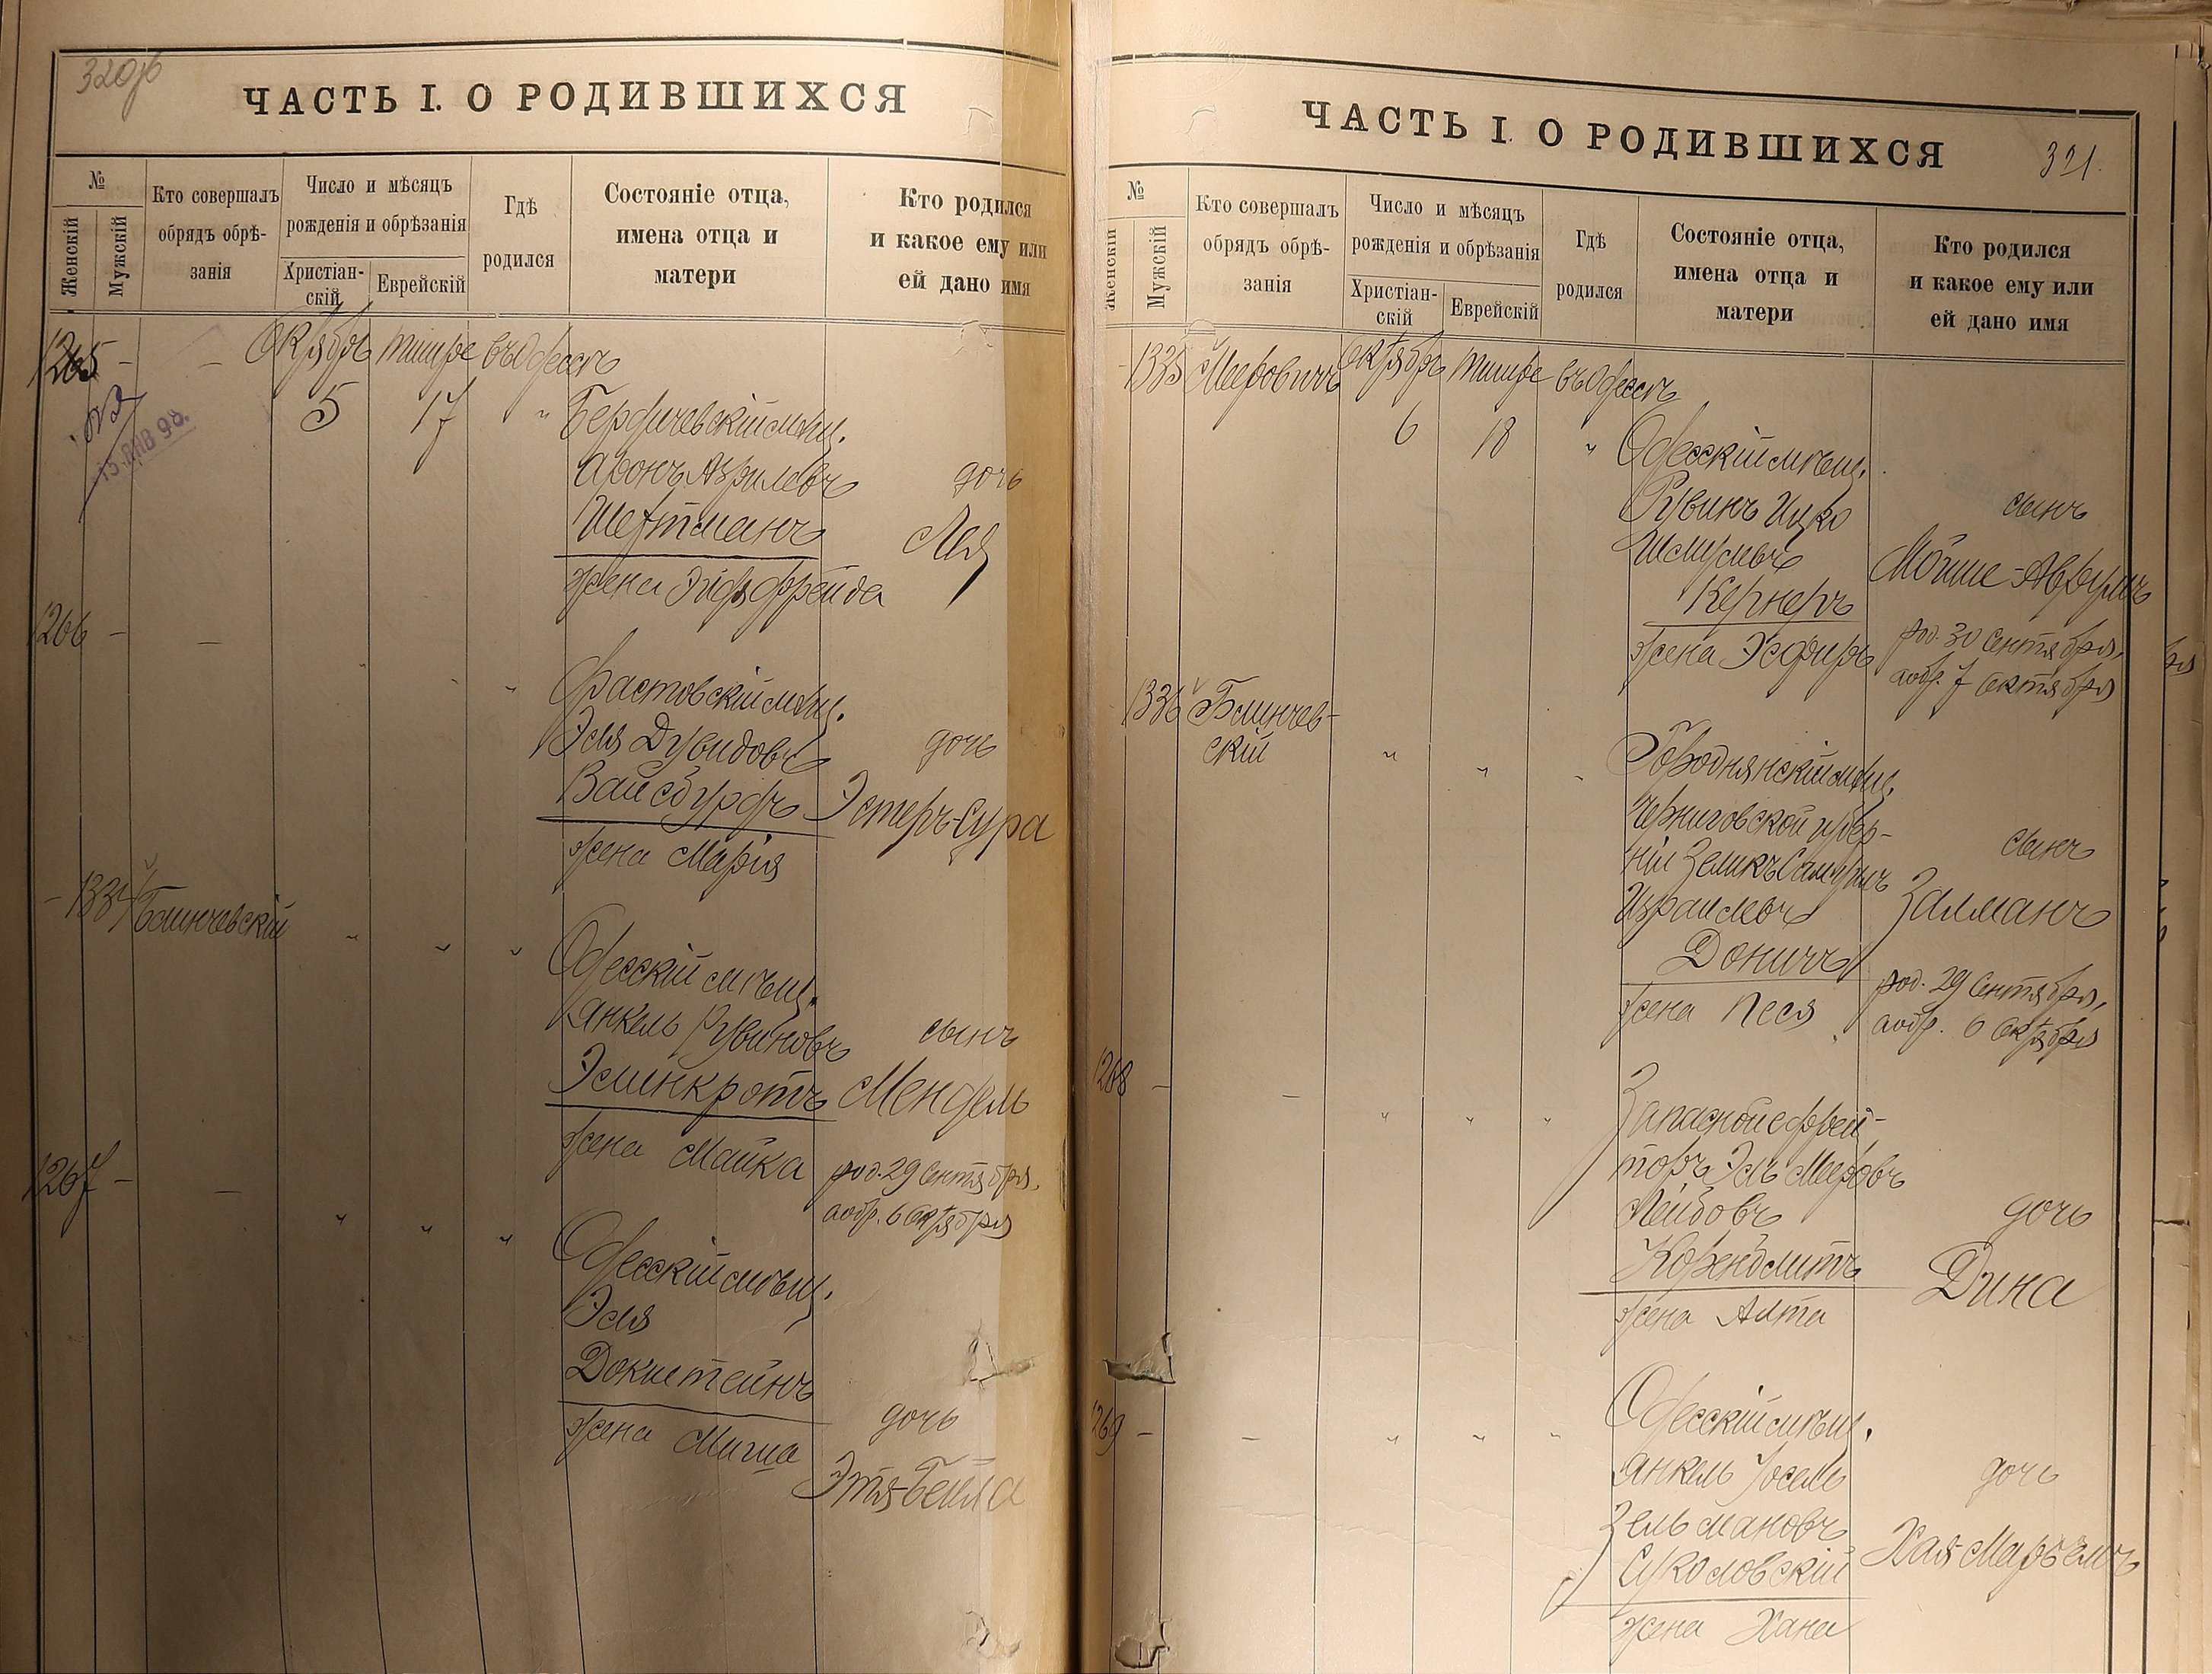 320об
ЧАСТЬ I. О РОДИВШИХСЯ
№
Женскій
Мужскій
Кто совершалъ
обрядъ обрѣ-
занія
Число и мѣсяцъ
рожденія и обрѣзанія
Христіан-
скій
Еврейскій
Гдѣ
родился
Состояніе отца,
имена отца и
матери
Кто родился
и какое ему или
ей дано имя
1265 - - Октябрь тишре въ Одессѣ
5 17 " Бердичевскій мѣщ.
Аронъ Азрилевъ дочь
Шехтманъ Лея
жена Фрейда
15. ЯНВ 98.
1266 - -
" " " Фастовскій мѣщ.
Эля Дувидовъ дочь
Вайсбурдъ Эстеръ-Сура
жена Марія
- 1334 Блинчевскій " " "
Одесскій мѣщ.
Янкель Рувиновъ сынъ
Эслинкротъ Мендель
жена Майка род. 29 Сентября,
а обр. 6 Октября
1267 - - " " "
Одесскій мѣщ.
Эля
Докштейнъ дочь
жена Миша Этя-Бейла
321.
ЧАСТЬ I. О РОДИВШИХСЯ
№
Женскій
Мужскій
Кто совершалъ
обрядъ обрѣ-
занія
Число и мѣсяцъ
рожденія и обрѣзанія
Христіан-
скій
Еврейскій
Гдѣ
родился
Состояніе отца,
имена отца и
матери
Кто родился
и какое ему или
ей дано имя
- 1335 Мееровичъ Октябрь тишре въ Одессѣ
6 18 " Одесскій мѣщ.
Рувинъ Ицко сынъ
Шмулевъ Мойше-Аврумъ
Кернеръ
жена Эсфирь род. 30 Сентября,
а обр. 7 Октября
1336 Блинчев-
скій " " "
Городнянскій мѣщ.
Черниговской губер-
ніи Зеликъ Самуилъ сынъ
Израилевъ Залманъ
Доничъ
жена Песя род. 29 Сентября,
а обр. 6 Октября
1268 - - " " "
Запасный ефрей-
торъ Эль Мееровъ
Лейбовъ дочь
Коренблитъ Дина
жена Алта
1269 - - " " "
Одесскій мѣщ.
Янкель Іосель дочь
Зельмановъ Хая-Марьемъ
Суколовскій
жена Хана